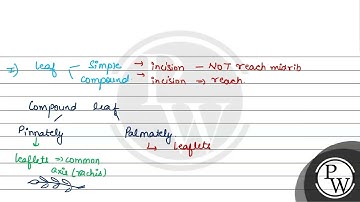 I) leaf simple → incision – NOT reach midrib
compound → incision ⇒ reach.
Compound leaf
Pinnately Palmately
leaflets ⇒ common ↳ leaflets
axis (rachis)
PW